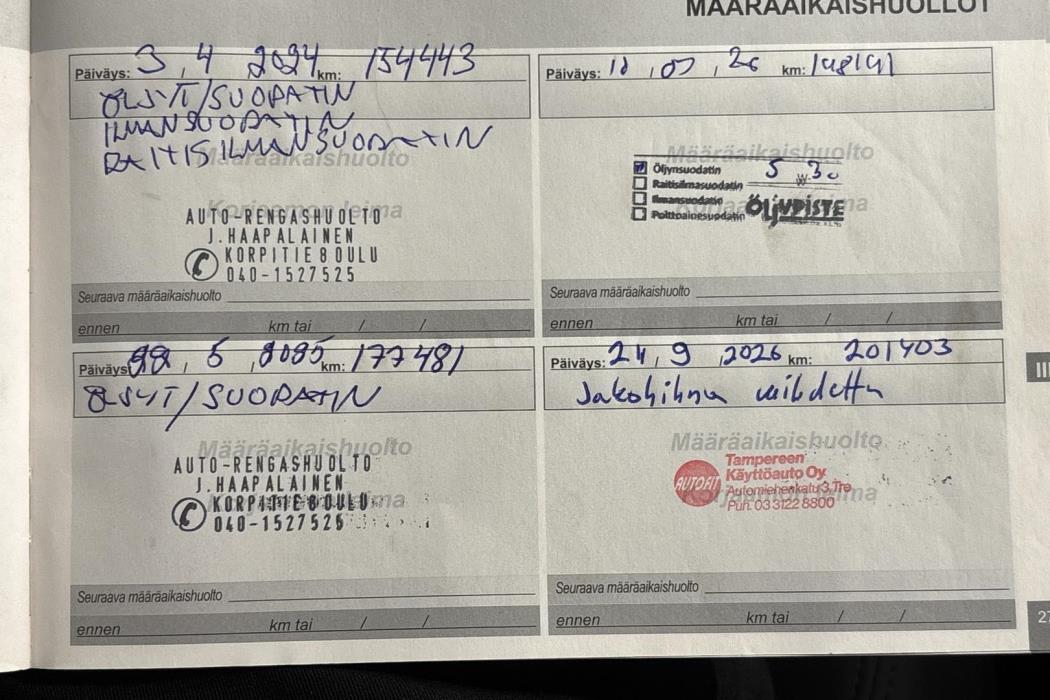 MÄÄRÄAIKAISHUOLLOT
Päiväys: 3 . 4 2024 km: 154443
ÖLJYT/SUODATIN
ILMANSUODATIN
RAITISILMANSUODATIN
Määräaikaishuolto
AUTO-RENGASHUOLTO
J.HAAPALAINEN
KORPITIE 8 OULU
040-1527525
Seuraava määräaikaishuolto
ennen km tai / /
Päiväys: , 07 , 26 km:
Määräaikaishuolto
Öljynsuodatin 5 w 30
Raitisilmasuodatin
Ilmansuodatin
Polttoainesuodatin
ÖLJYPISTE
Seuraava määräaikaishuolto
ennen km tai / /
Päiväys: , 5 , km: 177481
ÖLJYT/SUODATIN
Määräaikaishuolto
AUTO-RENGASHUOLTO
J.HAAPALAINEN
KORPITIE 8 OULU
040-1527525
Seuraava määräaikaishuolto
ennen km tai / /
Päiväys: 24 , 9 , 2026 km: 201403
Jakohihna vaihdettu
Määräaikaishuolto
AUTOFIT
Tampereen
Käyttöauto Oy
Automiehenkatu 3, Tre
Puh. 03 3122 8800
Seuraava määräaikaishuolto
ennen km tai / /
III
27